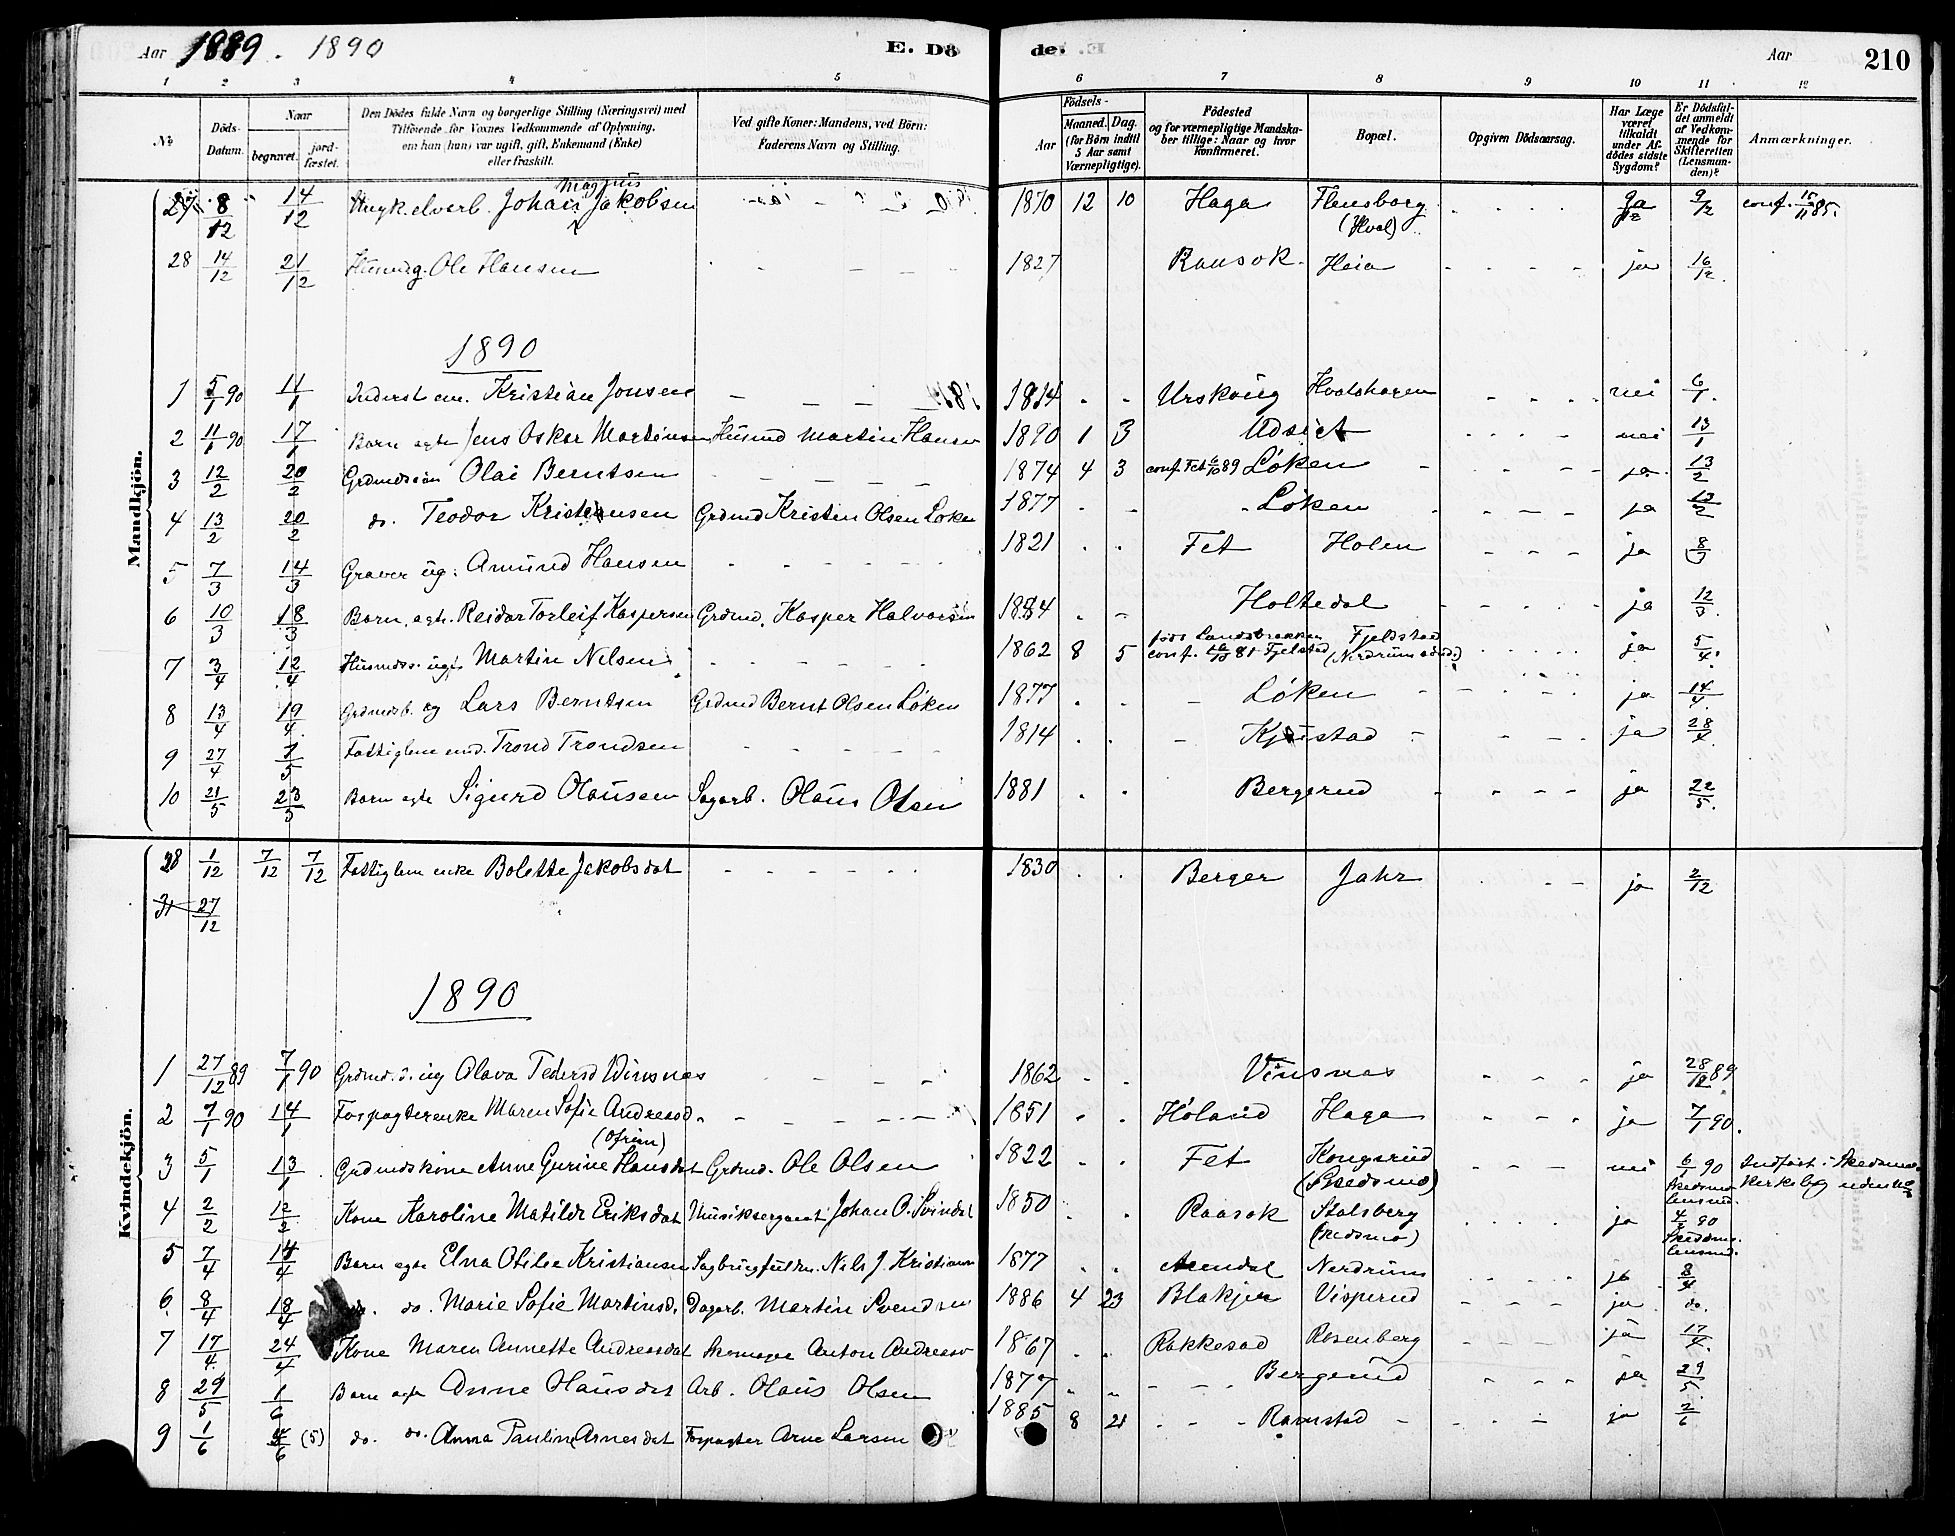 Aar 1889. 1890 E. Dö de. Aar 210
1 2 3 4 5 6 7 8 9 10 11 12
No Döds-Datum. Naar begravet. jordfæstet. Den Dödes fulde Navn og borgerlige Stilling (Næringsvei) med Tilföiende for Voxnes Vedkommende af Oplysning, om han (hun) var ugift, gift, Enkemand (Enke) eller fraskilt. Ved gifte Koner: Mandens, ved Börn: Faderens Navn og Stilling. Födsels- Aar Maaned. Dag. (for Börn indtil 5 Aar samt Værnepligtige). Födested og for værnepligtige Mandskaber tillige: Naar og hvor Konfirmeret. Bopæl. Opgiven Dödsaarsag. Har Læge været tilkaldt under Afdödes sidste Sygdom? Er Dödsfaldet anmeldt af Vedkommende for Skifteretten (Lensmanden)? Anmærkninger.
Mandkjön.
27 8/12 14/12 Johan Magnus Jakobsen 1870 12 10 Haga Flensborg (Hval) ja 9/12 conf. 15/11 85.
28 14/12 21/12 Husmdg. Ole Hansen 1827 Raasok Heia ja 16/12
1890
1 5/1 90 11/1 Inderst em. Kristian Jonsen 1814 Urskoug Hvalshagen nei 6/1
2 11/1 90 17/1 Barn egte Jens Oskar Martinsen Husmd Martin Hansen 1890 1 3 Udsict nei 13/1
3 12/2 20/2 Grdmdssön Olai Berntsen 1874 4 3 conf. Fet 6/10 89 Löken ja 13/2
4 13/2 20/2 do. Teodor Kristiansen Grdmd Kristen Olsen Löken 1877 Löken ja 13/2
5 7/3 14/3 Graver ug. Amund Hansen 1821 Fet Holen ja 8/3
6 10/3 18/3 Barn. egte. Reidar Torleif Kaspersen Grdmd. Kasper Halvorsen 1884 Holtedal ja 12/3
7 3/4 12/4 Husmdss. ugi. Martin Nilsen 1862 8 5 conf. 81 Fjelstad Fjeldstad (Nerdrum) ja 5/4
8 13/4 19/4 Grdmdsb. ug Lars Berntsen Grdmd Bernt Olsen Löken 1877 Löken ja 14/4
9 27/4 7/5 Fattiglem emd. Trond Trondsen 1814 Kjustad ja 28/4
10 21/5 23/5 Barn egte Sigurd Olausen Sagarb. Olaus Olsen 1881 Bergerud ja 22/5
Kvindekjön.
28 1/12 7/12 7/12 Fattiglem enke Bolette Jakobsdat 1830 Berger Jahr ja 2/12
31 27/12
1890
1 27/12 89 7/1 90 Grdmd. d. ug Olava Vinsnes 1862 Vinsnes ja 28/12 89
2 7/1 90 14/1 Forpagterenke Maren Sofie Andreasd. 1851 Höland Haga ja 7/1 90.
3 5/1 13/1 Grdmdskone Anne Gurine Hansdat Grdmd. Ole Olsen 1822 Fet Kongsrud (Skedsmo) nei 6/1 90 Skedsmo lensmd. Indfört i Skedsmo Kirkebog uden No
4 2/2 12/2 Kone Karoline Matilde Eriksdat Musiksergeant Johan O. Svindal 1850 Raasok Stalsberg (Skedsmo) ja 4/2 90 Skedsmo lensmd.
5 7/4 14/4 Barn egte Elna Otilie Kristiansen Sagbrugsfuldm. Nils J. Kristiansen 1877 Arendal Nerdrum ja 8/4
6 8/4 18/4 do. do. Marie Sofie Martinsd. Dagarb. Martin Svendsen 1886 4 23 Blakjer Visperud ja do.
7 17/4 24/4 Kone Maren Annette Andreasdat Skomager Anton Andreasen 1867 Rakkestad Rosenberg ja 17/4
8 29/5 1/6 Barn egte Anne Olausdat Arb. Olaus Olsen 1877 Bergerud ja 29/5
9 1/6 (5) do. do. Anna Pauline Arnesdat Forpagter Arne Larsen 1885 8 21 Ramstad ja 2/6